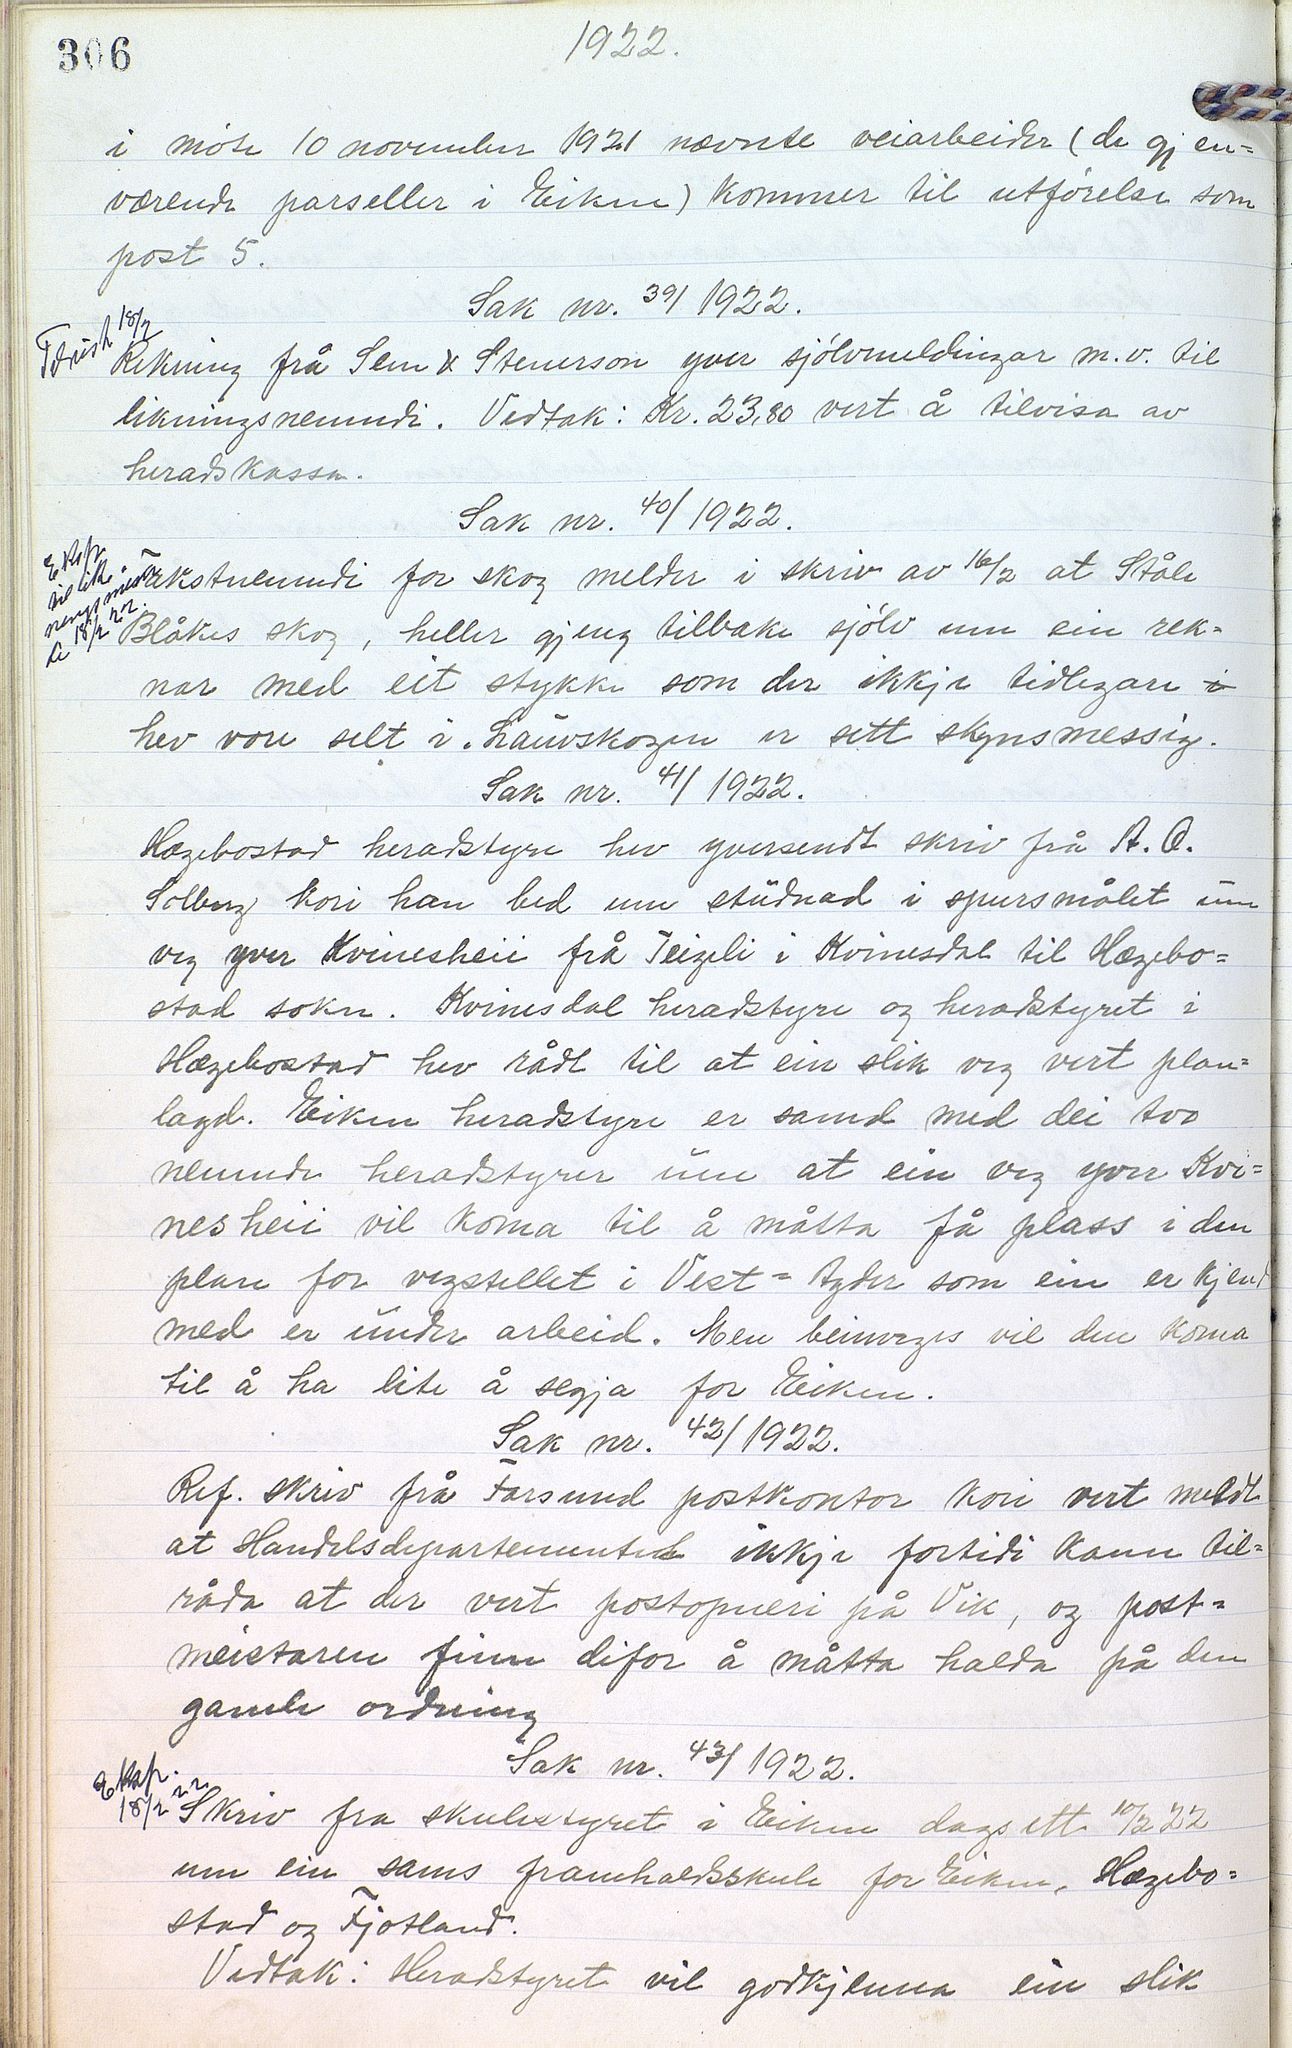 306
1922.
i møte 10 november 1921 nævnte veiarbeider (de gjen=
værende parseller i Eiken) kommer til utførelse som
post 5.
Sak nr. 39/1922.
18/2
Rekning frå Sem & Stenerson yver sjölvmeldingar m.v. til
likningsnemndi. Vedtak: Kr. 23,80 vert å tilvisa av
heradskassa.
Sak nr. 40/1922.
Eksp.
til lik-
nings
di 18/2 22.
Takstnemndi for skog melder i skriv av 16/2 at Ståle
Blåkes skog, heller gjeng tilbake sjölv um ein rek-
nar med eit stykke som der ikkje tidlegare i
hev vore selt i. Lauvskogen er sett skynsmessig.
Sak nr. 41/1922.
Hægebostad heradstyre hev yversendt skriv frå A. O.
Solberg kori han bed um studnad i spursmålet um
veg yver Kvinesheii frå Teigeli i Kvinesdal til Hægebo=
stad sokn. Kvinesdal heradstyre og heradstyret i
Hægebostad hev rådt til at ein slik veg vert plan=
lagd. Eiken heradstyre er samd med dei tvo
nemnde heradstyrer um at ein veg yver Kvi=
nesheii vil koma til å måtta få plass i den
plan for vegstellet i Vest=Agder som ein er kjend
med er under arbeid. Men beinveges vil den koma
til å ha lite å segja for Eiken.
Sak nr. 42/1922.
Ref. skriv frå Farsund postkontor kori vert meldt
at Handelsdepartementet ikkje fortidi kann til=
råda at der vert postopneri på Vik, og post=
meistaren finn difor å måtta halda på den
gamle ordning
Sak nr. 43/1922.
Eksp.
18/2 22
Skriv fra skulestyret i Eiken dagsett 10/2 22
um ein sams framhaldsskule for Eiken, Hægebo=
stad og Fjotland.
Vedtak: Heradstyret vil godkjenna ein slik